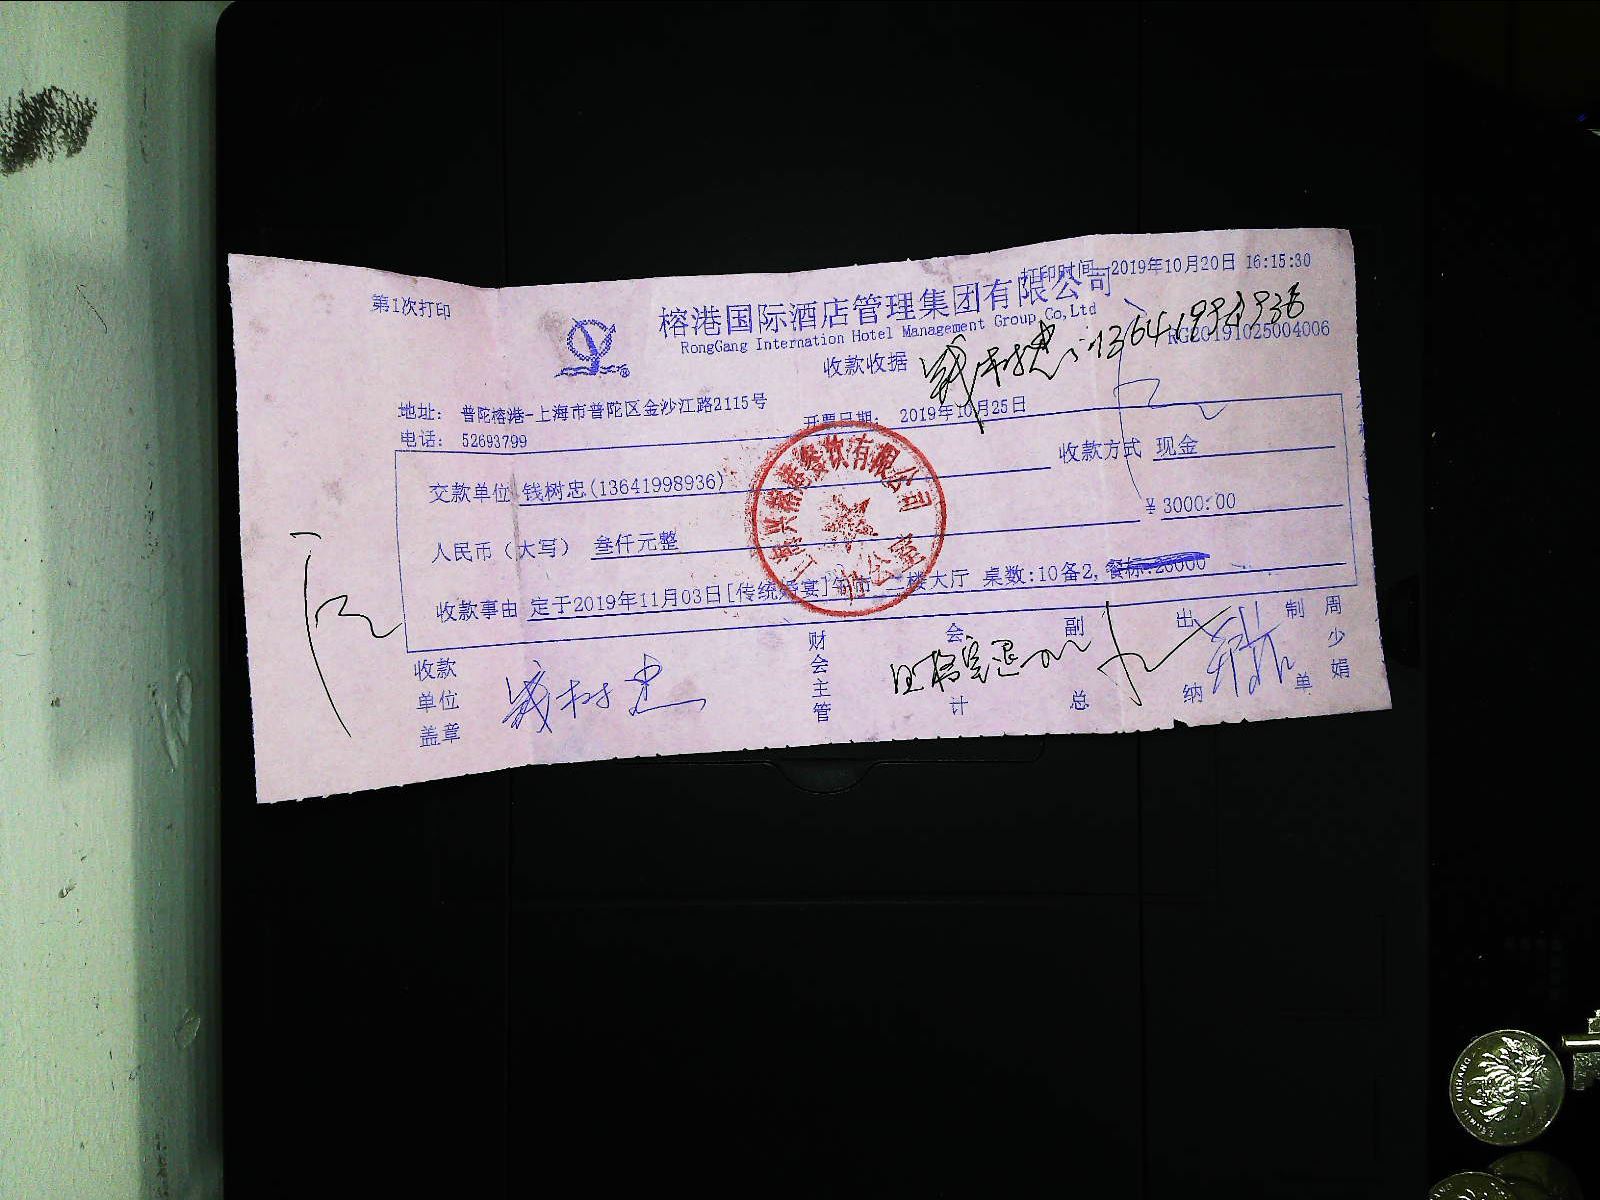 第1次打印
打印时间 2019年10月20日 16:15:30
榕港国际酒店管理集团有限公司
RongGang Internation Hotel Management Group Co,Ltd
RG20191025004006
收款收据
钱树忠:13641998936
地址: 普陀榕港-上海市普陀区金沙江路2115号
电话: 52693799
开票日期: 2019年10月25日
交款单位 钱树忠(13641998936)
收款方式 现金
人民币(大写) 叁仟元整
¥ 3000:00
收款事由 定于2019年11月03日[传统婚宴]午市 二楼大厅 桌数:10备2, 餐标:20000
餐饮有限公司
办公室
收款单位盖章
钱树忠
财会主管
会计
副总
出纳
制单
周少娟